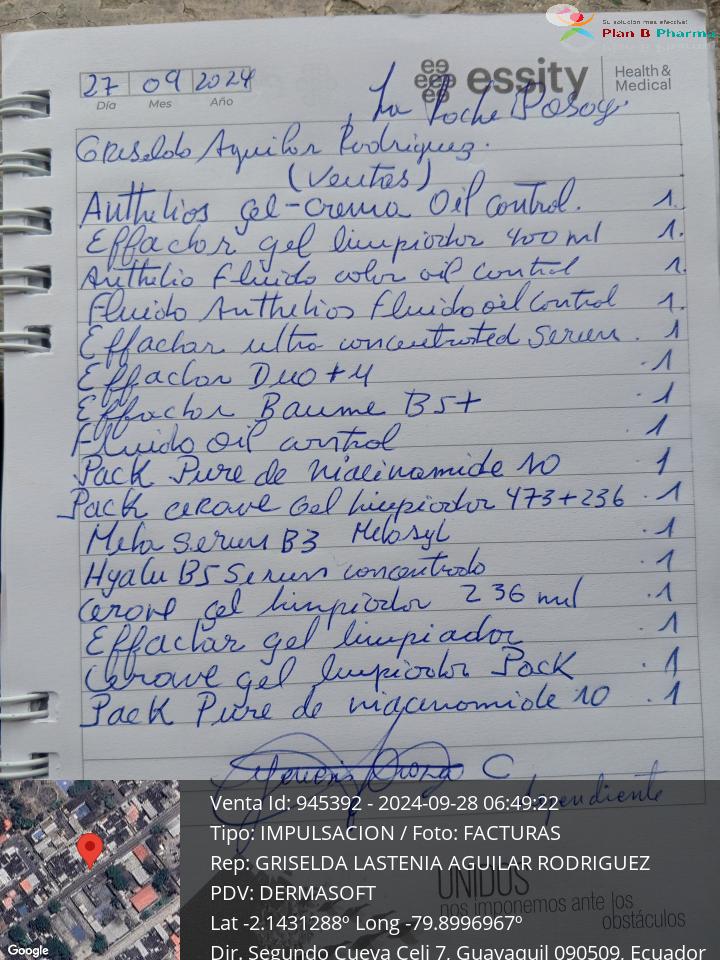 Su solución más efectiva!
Plan B Pharma
27 09 2024
Día Mes Año
essity Health & Medical
La Roche Posay.
Griselda Aguilar Rodriguez.
(Ventas)
Anthelios gel-crema Oil control. 1.
Effaclar gel limpiador 400 ml 1.
Anthelio Fluido color oil control 1.
Fluido Anthelios Fluido oil control 1.
Effaclar ultra concentrated serum. 1
Effaclar Duo+M .1
Effaclar Baume B5+ .1
Fluido oil control 1
Pack Pure de niacinamide 10 1
Pack cerave Gel limpiador 473+236 .1
Mela serum B3 Melasyl .1
Hyalu B5 Serum concentrado .1
Cerave gel limpiador 236 ml .1
Effaclar gel limpiador .1
Cerave gel limpiador Pack .1
Pack Pure de niacinamide 10 .1
C
UNIDOS
nos imponemos ante los
obstáculos
Venta Id: 945392 - 2024-09-28 06:49:22
Tipo: IMPULSACION / Foto: FACTURAS
Rep: GRISELDA LASTENIA AGUILAR RODRIGUEZ
PDV: DERMASOFT
Lat -2.1431288º Long -79.8996967º
Dir. Segundo Cueva Celi 7, Guayaquil 090509, Ecuador
Google